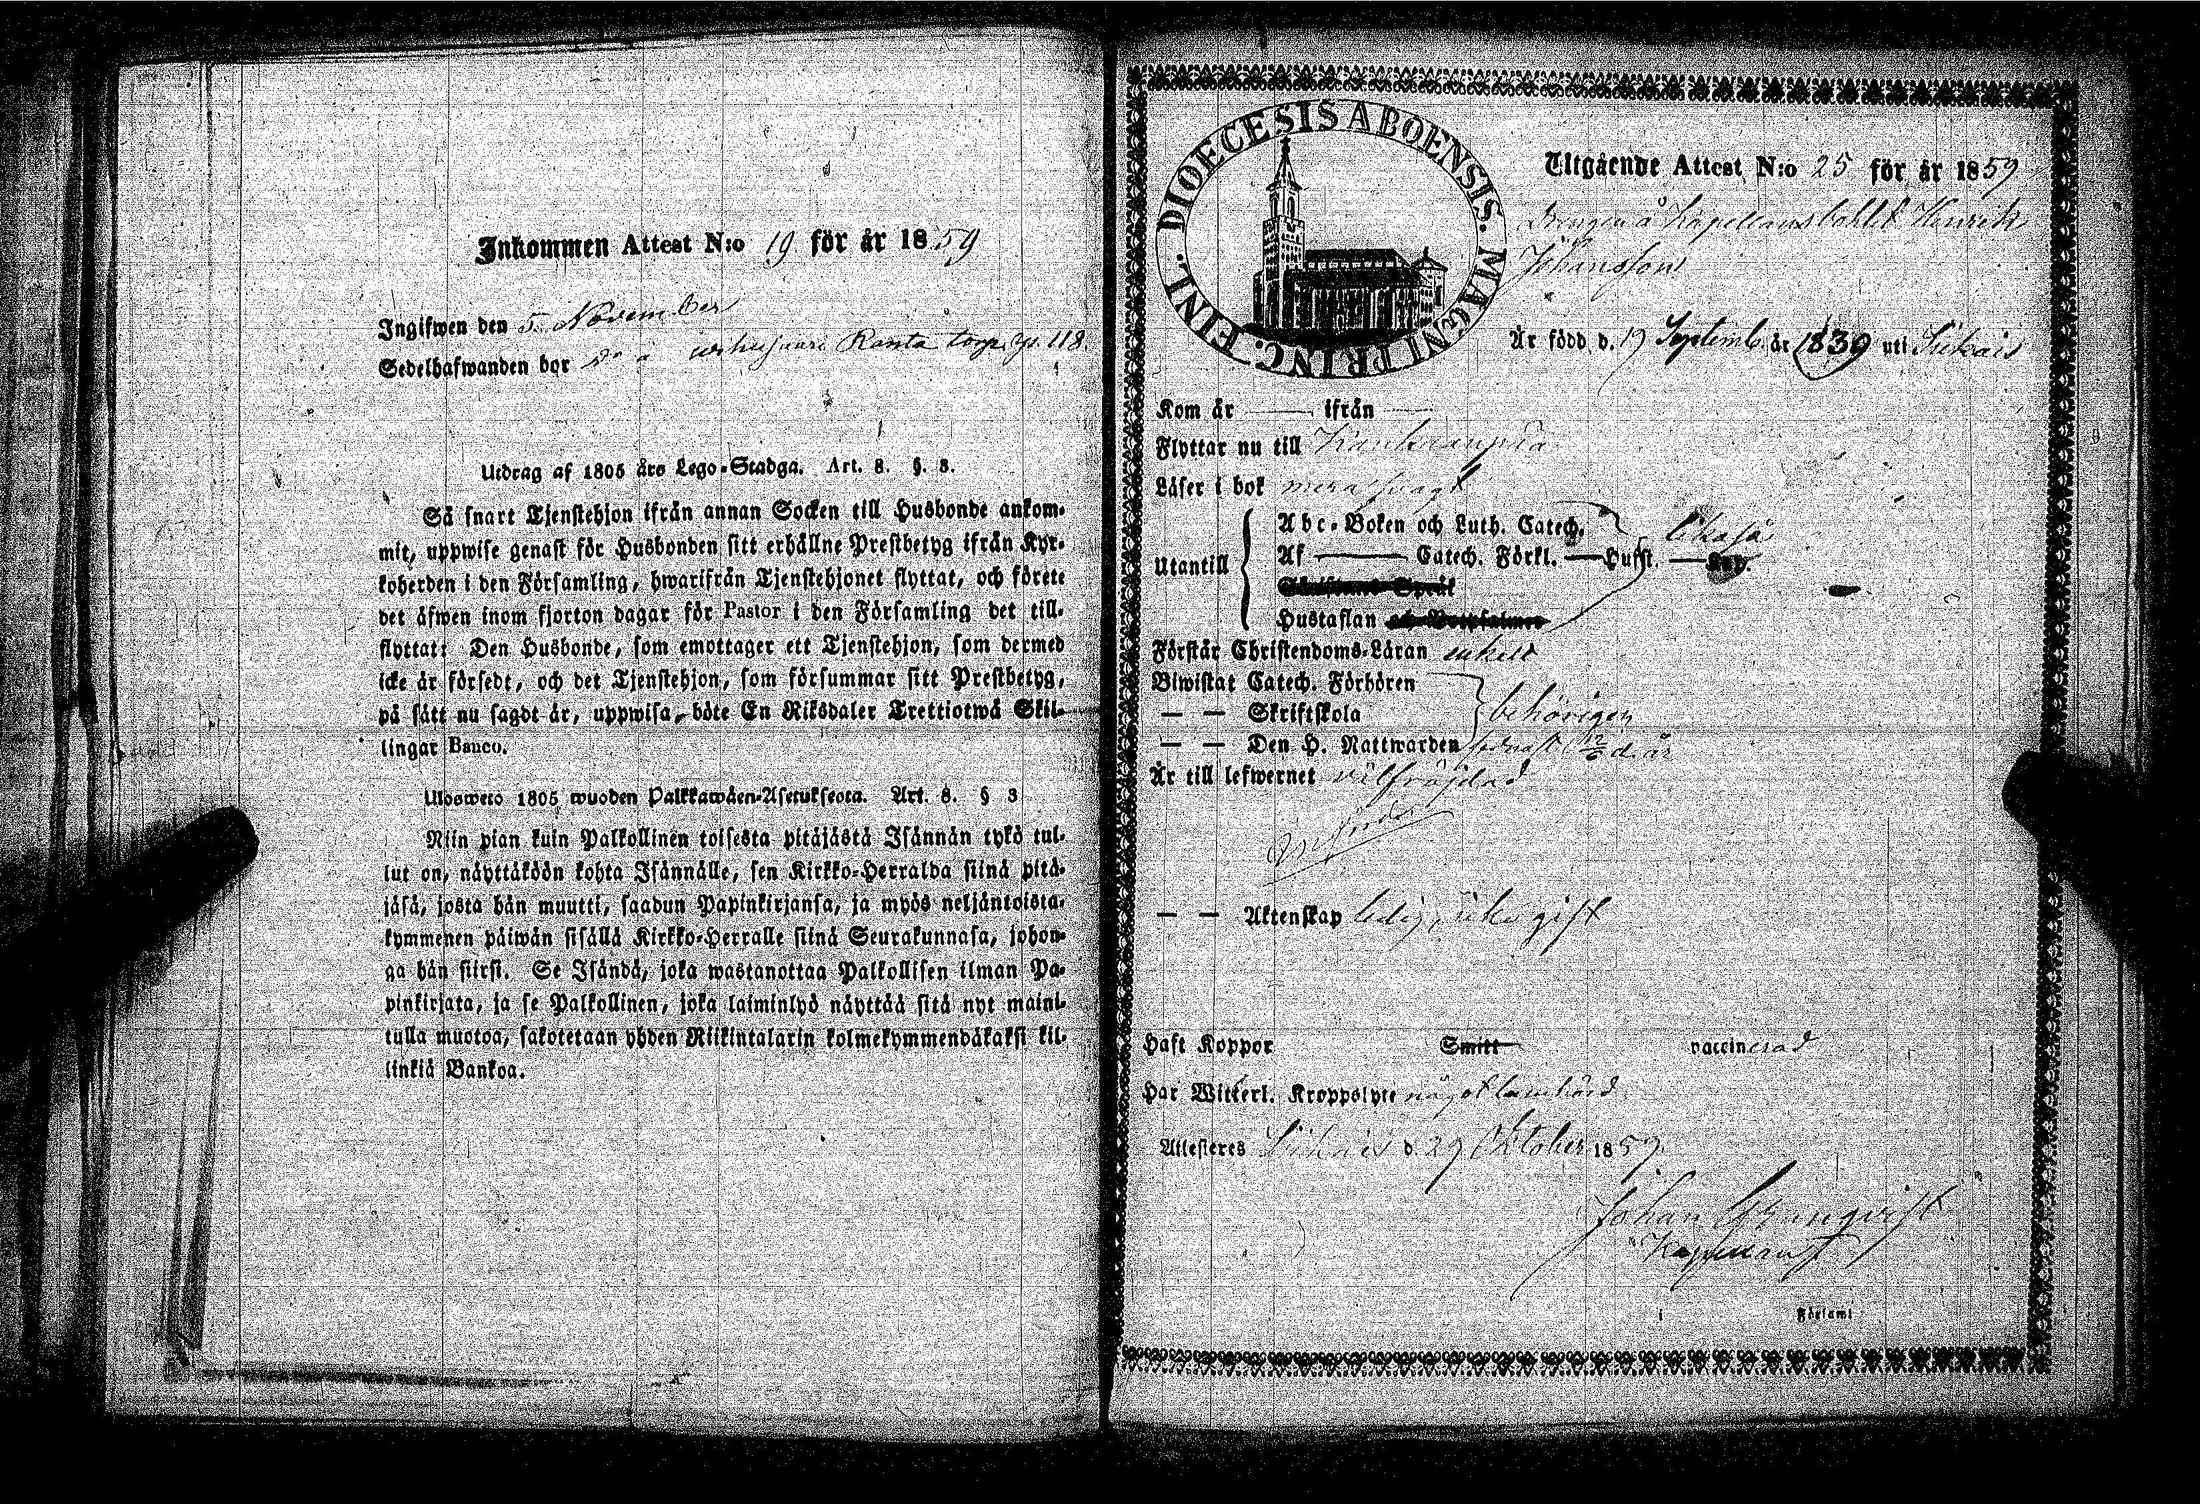 Inkommen Attest N:o 19 för år 1859
Ingifwen den 5 November
Sedelhafwanden bor å Ranta torp pag. 118.
Utdrag af 1805 års Lego-Stadga. Art. 8. §. 3.
Så snart Tjenstehjon ifrån annan Socken till Husbonde ankom-
mit, uppwise genast för Husbonden sitt erhållne Prestbetyg ifrån Kyr-
koherden i den Församling, hwarifrån Tjenstehjonet flyttat, och förete
det äfwen inom fjorton dagar för Pastor i den Församling det till-
flyttat: Den Husbonde, som emottager ett Tjenstehjon, som dermed
icke är försedt, och det Tjenstehjon, som försummar sitt Prestbetyg,
på sätt nu sagdt är, uppwisa, böte En Riksdaler Trettiotwå Skil-
lingar Banco.
Ulosweto 1805 wuoden Palkkawäen-Asetuksesta. Art. 8. § 3
Niin pian kuin Palkollinen toisesta pitäjästä Isännän tykö tul-
lut on, näyttäköön kohta Isännälle, sen Kirkko-Herralda siinä pitä-
jäsä, josta hän muutti, saadun Papinkirjansa, ja myös neljäntoista-
kymmenen päiwän sisällä Kirkko-Herralle siinä Seurakunnasa, johon-
ga hän siirsi. Se Isändä, joka wastanottaa Palkollisen ilman Pa-
pinkirjata, ja se Palkollinen, joka laiminlyö näyttää sitä nyt maini-
tulla muotoa, sakotetaan yhden Riikintalarin kolmekymmendäkaksi kil-
linkiä Bankoa.
DIOECESIS ABOENSIS. MAGNI PRINC. FINL.
Utgående Attest N:o 25 för år 1859
Drengen å Kapellansbohlet Henrik
Johansson
Är född d. 19 Septemb. år 1839 uti Siikais
Kom år — ifrån —
Flyttar nu till Kankaanpää
Läser i bok mera svagt
Utantill
Abc-Boken och Luth. Catech. likaså
Af — Catech. Förkl. — Hufst. —
Hustaflan
Förstår Christendoms-Läran enkelt
Biwistat Catech. Förhören
— — Skriftskola behörigen
— — Den H. Nattwarden senast d. år
Är till lefwernet välfräjdad
— — Äktenskap ledig, icke gift
Haft Koppor Smitt vaccinerad
Har Witterl. Kroppslyte något lomhörd
Attesteres Siikais d. 29 Oktober 1859.
Johan
Kapellan
i Församl